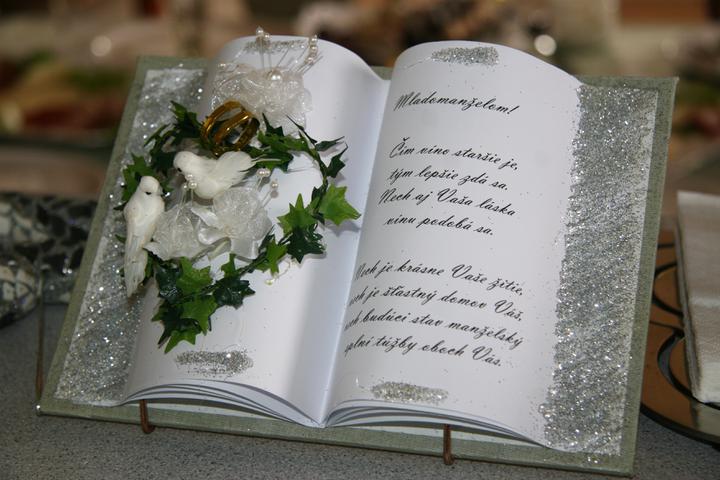 Mladomanželom!
Čím víno staršie je,
tým lepšie zdá sa.
Nech aj Vaša láska
vínu podobá sa.
Nech je krásne Vaše žitie,
nech je šťastný domov Váš,
nech budúci stav manželský
splní túžby oboch Vás.